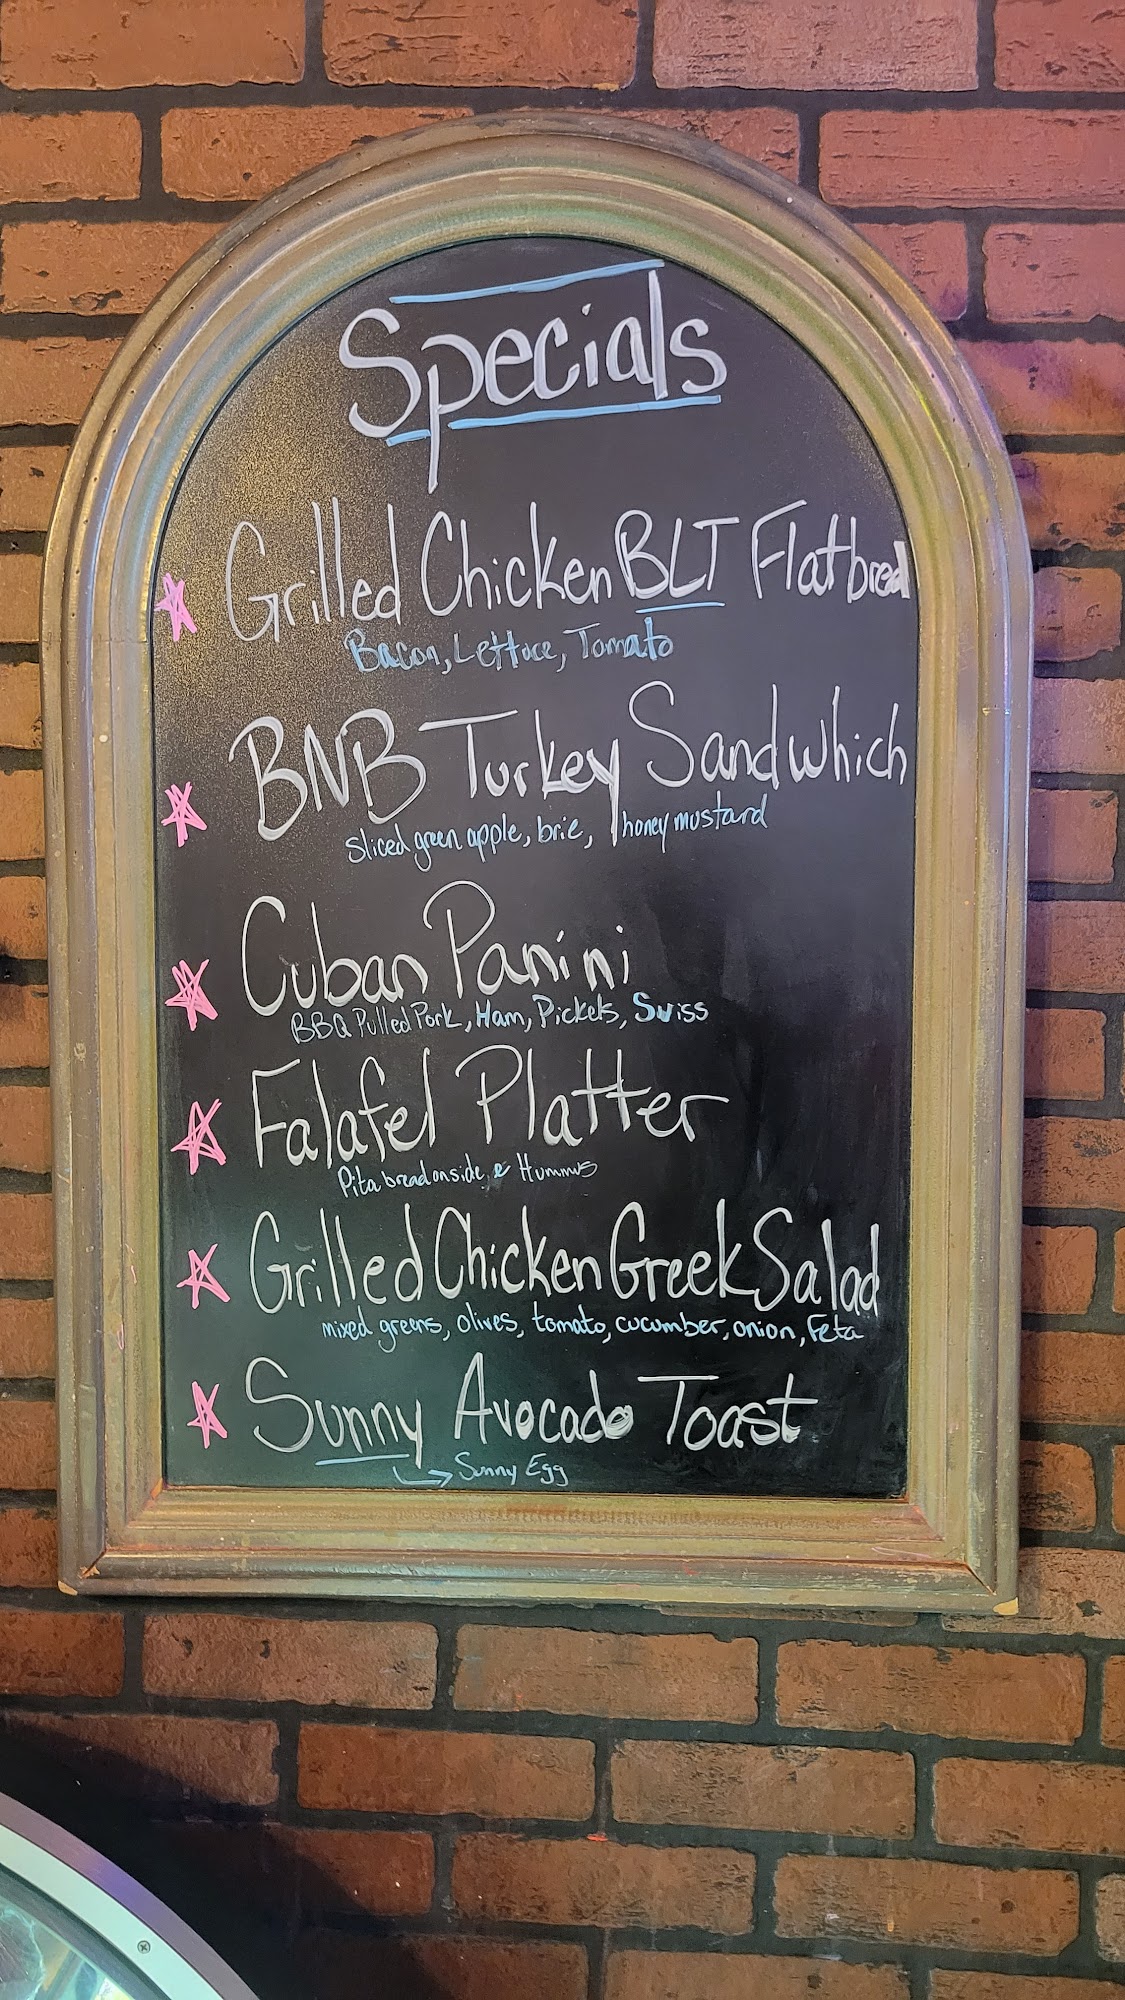 Specials
Grilled Chicken BLT Flatbread
Bacon, Lettuce, Tomato
BNB Turkey Sandwhich
Sliced green apple, brie, honey mustard
Cuban Panini
BBQ Pulled Pork, Ham, Pickels, Swiss
Falafel Platter
Pita bread on side & Hummus
Grilled Chicken Greek Salad
mixed greens, olives, tomato, cucumber, onion, Feta
Sunny Avocado Toast
Sunny Egg